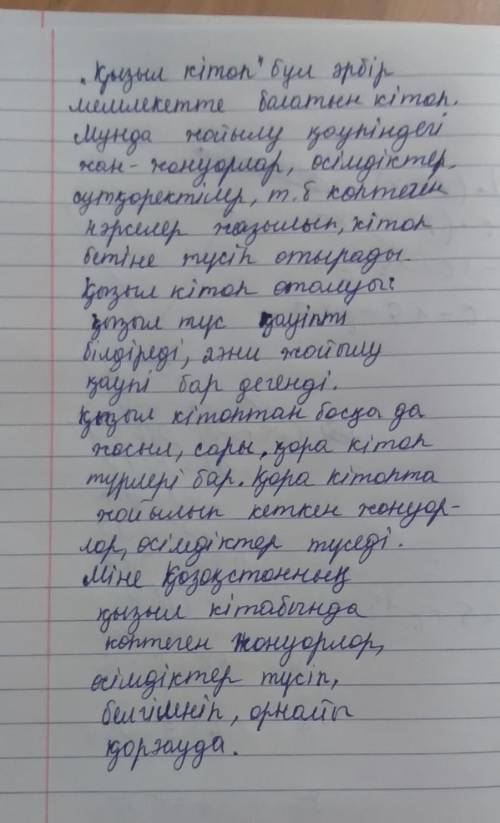 „Қызыл кітап" бұл әрбір
мемлекетте болатын кітап.
Мұнда жойылу қаупіндегі
жан-жануарлар, өсімдіктер,
сүтқоректілер, т.б көптеген
нәрселер жазылып, кітап
бетіне түсіп отырады.
Қызыл кітап аталуы:
қызыл түс қауіпті
білдіреді, яғни жойылу
қаупі бар дегенді.
Қызыл кітаптан басқа да
жасыл, сары, қара кітап
түрлері бар. Қара кітапта
жойылып кеткен жануар-
лар, өсімдіктер түседі.
Міне Қазақстанның
қызыл кітабында
көптеген жануарлар,
өсімдіктер түсіп,
белгіленіп, арнайы
қорғауда.